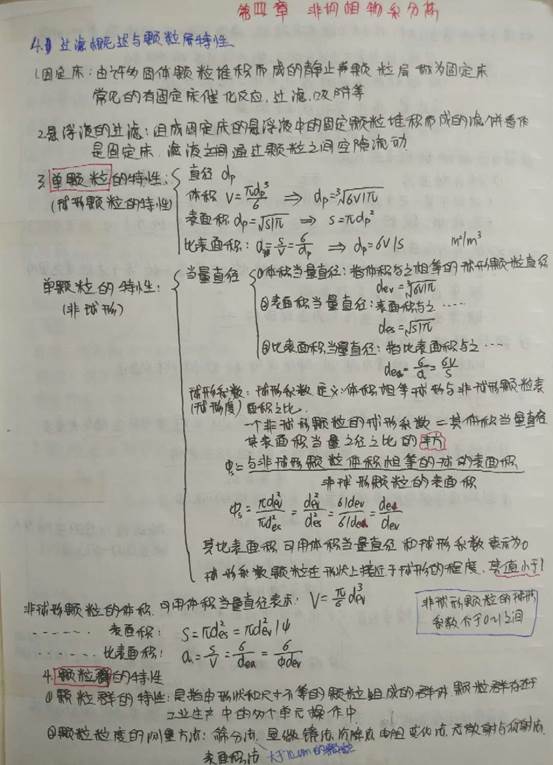 第四章 非均相物系分离
4.1 过滤概述与颗粒层特性
1.固定床：由许多固体颗粒堆积而成的静止颗粒层称为固定床
常见的有固定床催化反应，过滤，吸附等
2.悬浮液的过滤：组成固定床的是悬浮液中的固定颗粒堆积而成的滤饼看作
是固定床，滤液之间通过颗粒之间空隙流动
3.单颗粒的特性：
(球形颗粒的特性)
直径 dp
体积 V=πdp³/6 ⇒ dp=³√6V/π
表面积 dp=√S/π ⇒ S=πdp²
比表面积：a=S/V=6/dp ⇒ dp=6V/S m²/m³
单颗粒的特性：
(非球形)
当量直径
①体积当量直径：指体积与之相等的球形颗粒直径
dev=³√6V/π
②表面积当量直径：表面积与之……
des=√S/π
③比表面积当量直径：指比表面积与之…
dea=6/a=6V/S
球形系数：球形系数定义：体积相等球形与非球形颗粒表
(球形度) 面积之比.
一个非球形颗粒的球形系数=其体积当量直径
其表面积当量之径之比的平方
Φs=与非球形颗粒体积相等的球的表面积/非球形颗粒的表面积
Φs=πd²ev/πd²es=d²ev/d²es=6/dev/6/dea=dea/dev
其比表面积可用体积当量直径和球形系数表示为
球形系数颗粒在形状上接近于球形的程度，其值小于1
非球形颗粒的体积，可用体积当量直径表示：V=π/6 d³ev
…… 表面积：S=πd²es=πd²ev/ψ
…… 比表面积：a=S/V=6/dea=6/Φdev
非球形颗粒的球形系数介于0~1之间
4.颗粒群的特性
①颗粒群的特性：是指由形状和尺寸不等的颗粒组成的群体 颗粒群存在于
工业生产中的多个单元操作中.
②颗粒粒度的测量方法：筛分法，显微镜法，沉降法，电阻变化法，光散射与衍射法
表面积法 大于70μm的颗粒